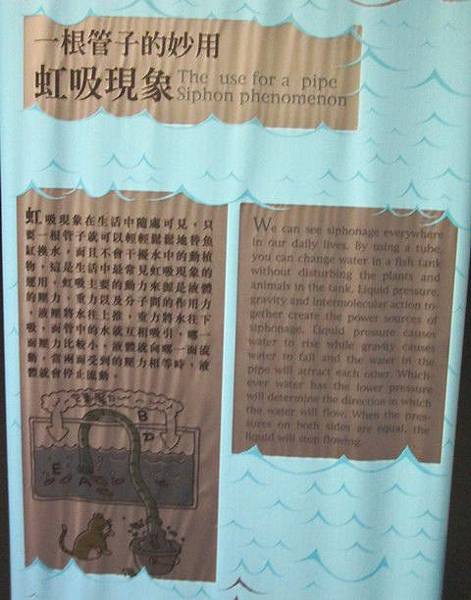 一根管子的妙用
虹吸現象
The use for a pipe
Siphon phenomenon
虹吸現象在生活中隨處可見，只
要一根管子就可以輕輕鬆鬆地替魚
缸換水，而且不會干擾水中的動植
物，這是生活中最常見虹吸現象的
運用，虹吸主要的動力來源是液體
的壓力，重力以及分子間的作用力
，液壓將水往上推，重力將水往下
吸，而管中的水就互相吸引，哪一
面壓力比較小，液體就向哪一面流
動，當兩面受到的壓力相等時，液
體就會停止流動。
We can see siphonage everywhere
in our daily lives. By using a tube,
you can change water in a fish tank
without disturbing the plants and
animals in the tank. Liquid pressure,
gravity and intermolecular action to-
gether create the power sources of
siphonage. Liquid pressure causes
water to rise while gravity causes
water to fall and the water in the
pipe will attract each other. Which-
ever water has the lower pressure
will determine the direction in which
the water will flow. When the pres-
sures on both sides are equal, the
liquid will stop flowing.
B
D
E
A